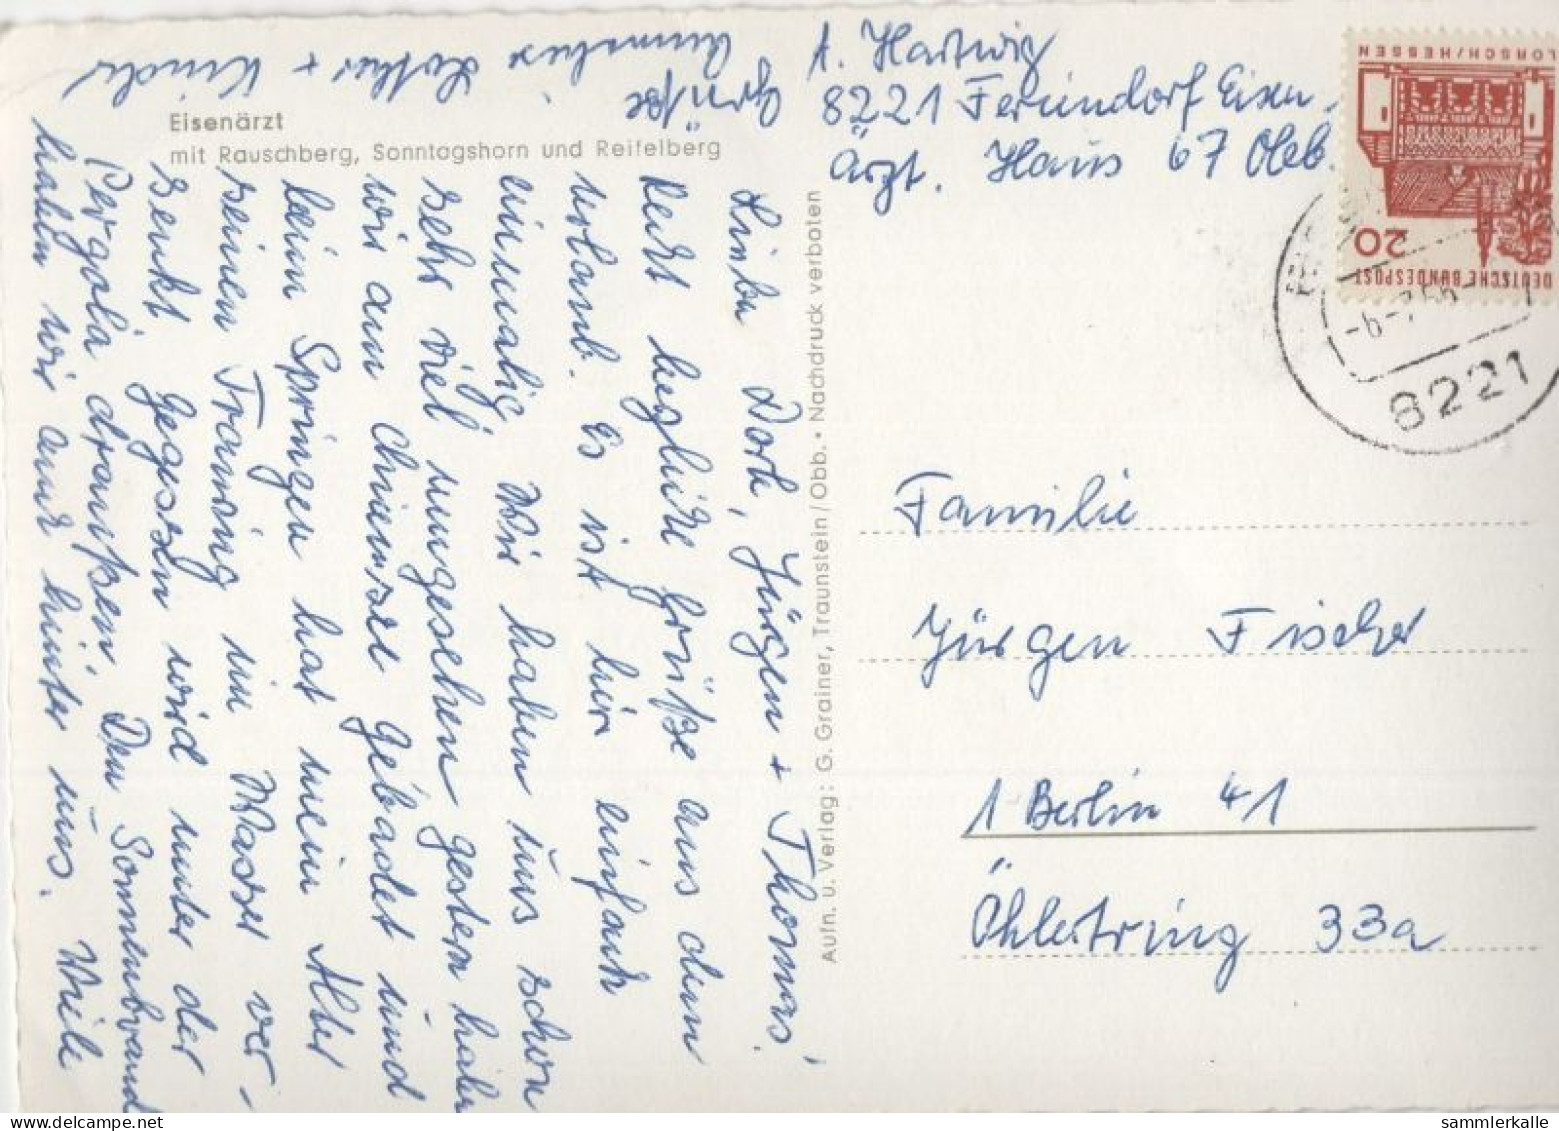 Eisenärzt
mit Rauschberg, Sonntagshorn und Reifelberg
A. Hartwig
8221 Ferúndorf Eisen
Ärzt. Haus 67 Obb.
LORSCH/HESSEN
20
DEUTSCHE BUNDESPOST
-6-7.66-
8221
Liebe Dorh, Jürgen + Thomas!
Recht herzliche Grüße aus dem
Urlaub. Es ist hier einfach
einmalig. Wir haben uns schon
sehr viel angesehen gestern habe
wir am Chiemsee gebadet und
beim Springen hat mein Alter
seinen Trauring im Wasser ver-
senkt. Gegessen wird unter der
Pergola draußen. Den Sonnenbrand
haben wir auch hinter uns. Viele
Grüße
Lothar + Kinder
Aufn. u. Verlag: G. Grainer, Traunstein/Obb. • Nachdruck verboten
Familie
Jürgen Fischer
1 Berlin 41
Öhlertring 33a
www.delcampe.net
sammlerkalle